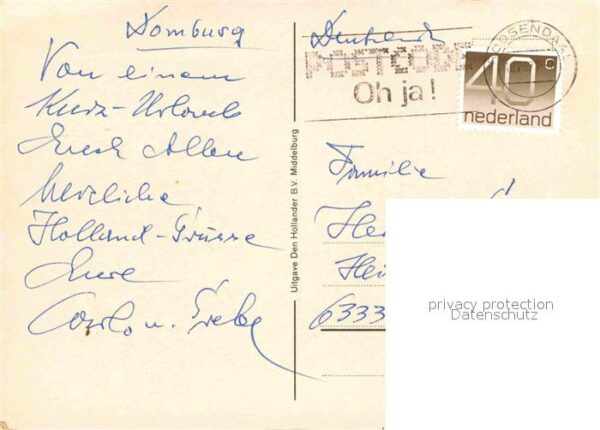 Domburg
Von einem
Kurz-Urlaub
Euch Allen
herzliche
Holland-Grüsse
Eure
u.
Uitgave Den Hollander B.V. Middelburg
POSTCODE
Oh ja!
40c
nederland
Familie
6333
privacy protection
Datenschutz